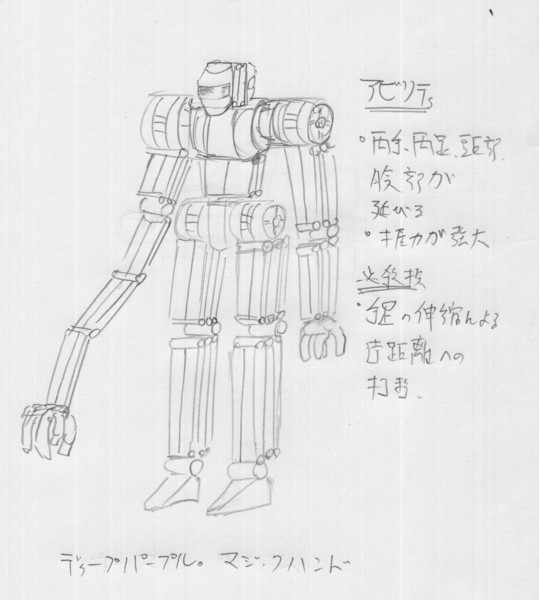 アビリティ
・両手、両足、頭部、
腹部が
延びる
・握力が強大
必殺技
・手足の伸縮による
遠距離への
打撃.
ディープパープル。マジックハンド